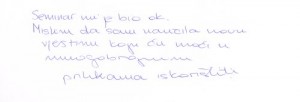 Seminar mi je bio ok.
Mislim da sam naučila novu
vještinu koju ću moći u
mnogobrojnim
prilikama iskoristiti